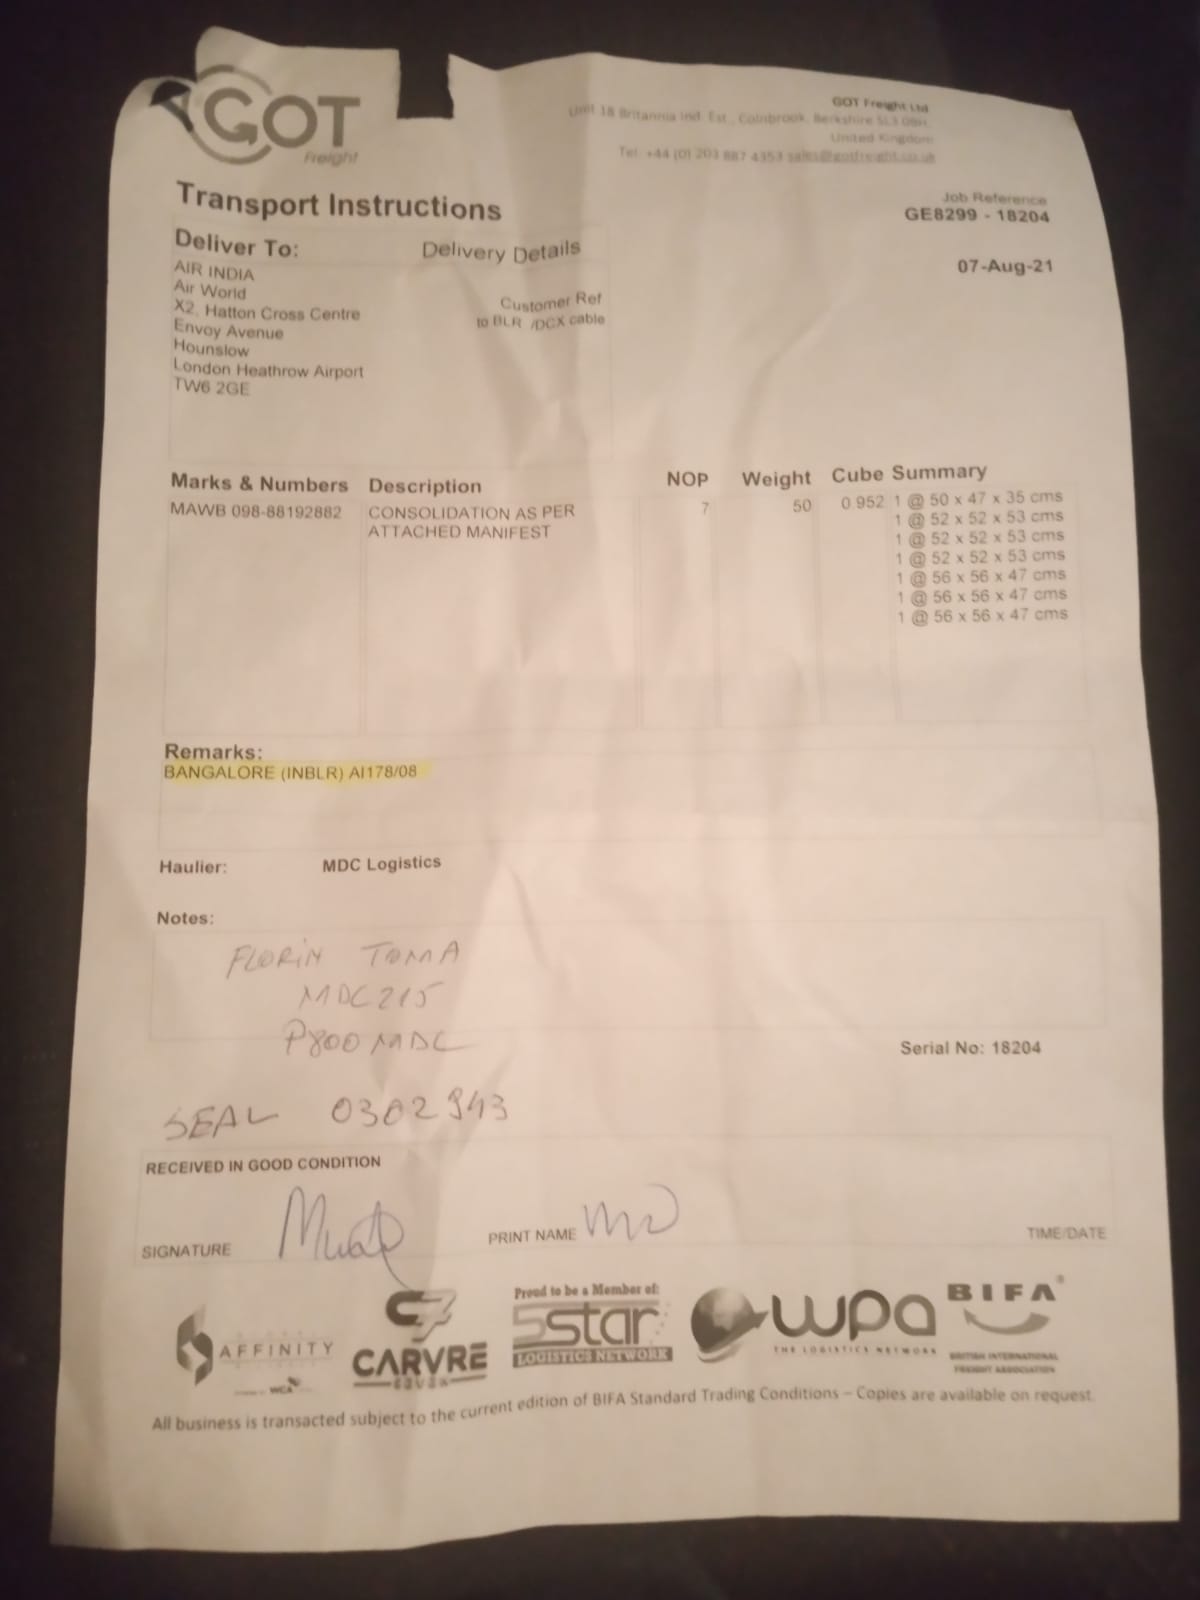 GOT
Freight
GOT Freight Ltd
Unit 18 Britannia Ind. Est., Colnbrook, Berkshire SL3 0BH,
United Kingdom
Tel: +44 (0) 203 887 4353 sales@gotfreight.co.uk
Transport Instructions
Job Reference
GE8299 - 18204
Deliver To:
Delivery Details
07-Aug-21
AIR INDIA
Air World
X2, Hatton Cross Centre
Envoy Avenue
Hounslow
London Heathrow Airport
TW6 2GE
Customer Ref
to BLR /DCX cable
Marks & Numbers Description NOP Weight Cube Summary
MAWB 098-88192882 CONSOLIDATION AS PER 7 50 0.952 1 @ 50 x 47 x 35 cms
ATTACHED MANIFEST 1 @ 52 x 52 x 53 cms
1 @ 52 x 52 x 53 cms
1 @ 52 x 52 x 53 cms
1 @ 56 x 56 x 47 cms
1 @ 56 x 56 x 47 cms
1 @ 56 x 56 x 47 cms
Remarks:
BANGALORE (INBLR) AI178/08
Haulier: MDC Logistics
Notes:
FLORIN TOMA
MDC215
P800MDC
Serial No: 18204
SEAL 0302943
RECEIVED IN GOOD CONDITION
SIGNATURE
PRINT NAME
TIME/DATE
AFFINITY
WCA
C7
CARVRE
SEVEN
Proud to be a Member of:
5star
LOGISTICS NETWORK
wpa
THE LOGISTICS NETWORK
BIFA®
BRITISH INTERNATIONAL
FREIGHT ASSOCIATION
All business is transacted subject to the current edition of BIFA Standard Trading Conditions – Copies are available on request.